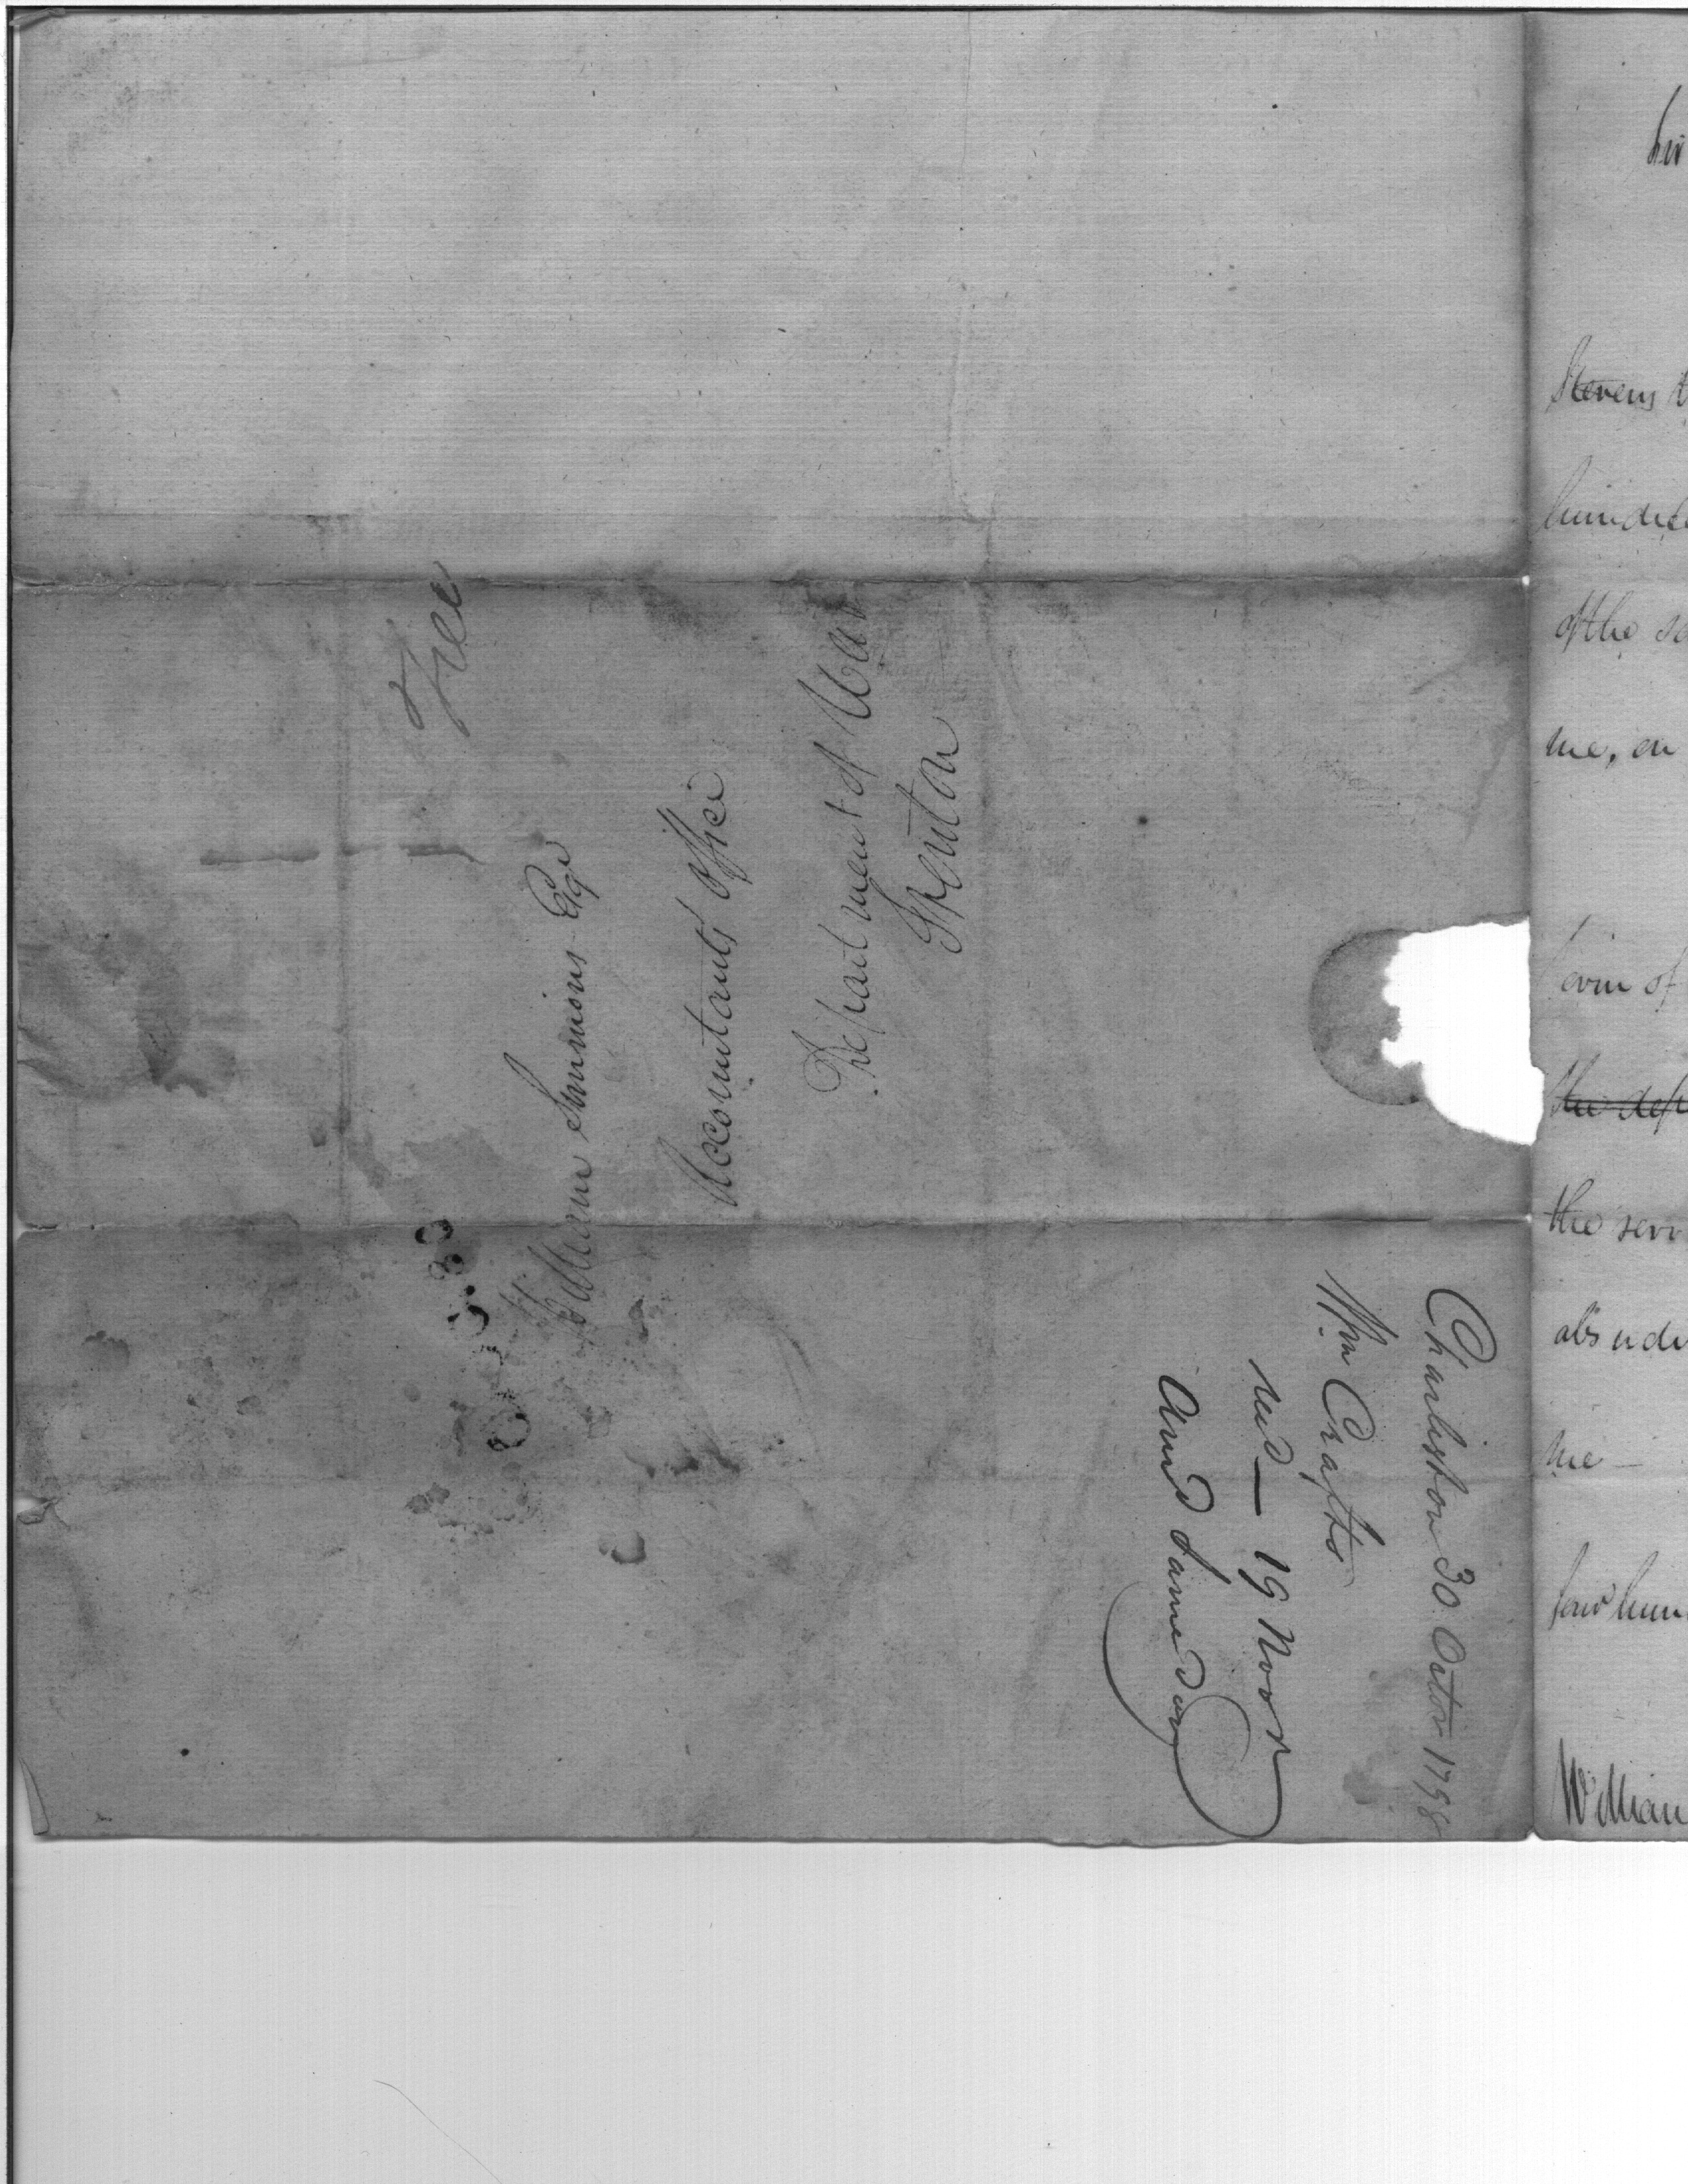 Free
William Simmons Esqr
Accountants Office
Department of War
Trenton
Charleston 30 Octor 1798
Wm Crafts
recd — 19 Novr
Answd Same day
Sir
Stevens
hundred
of the
me, on
the
me —
four hun
William